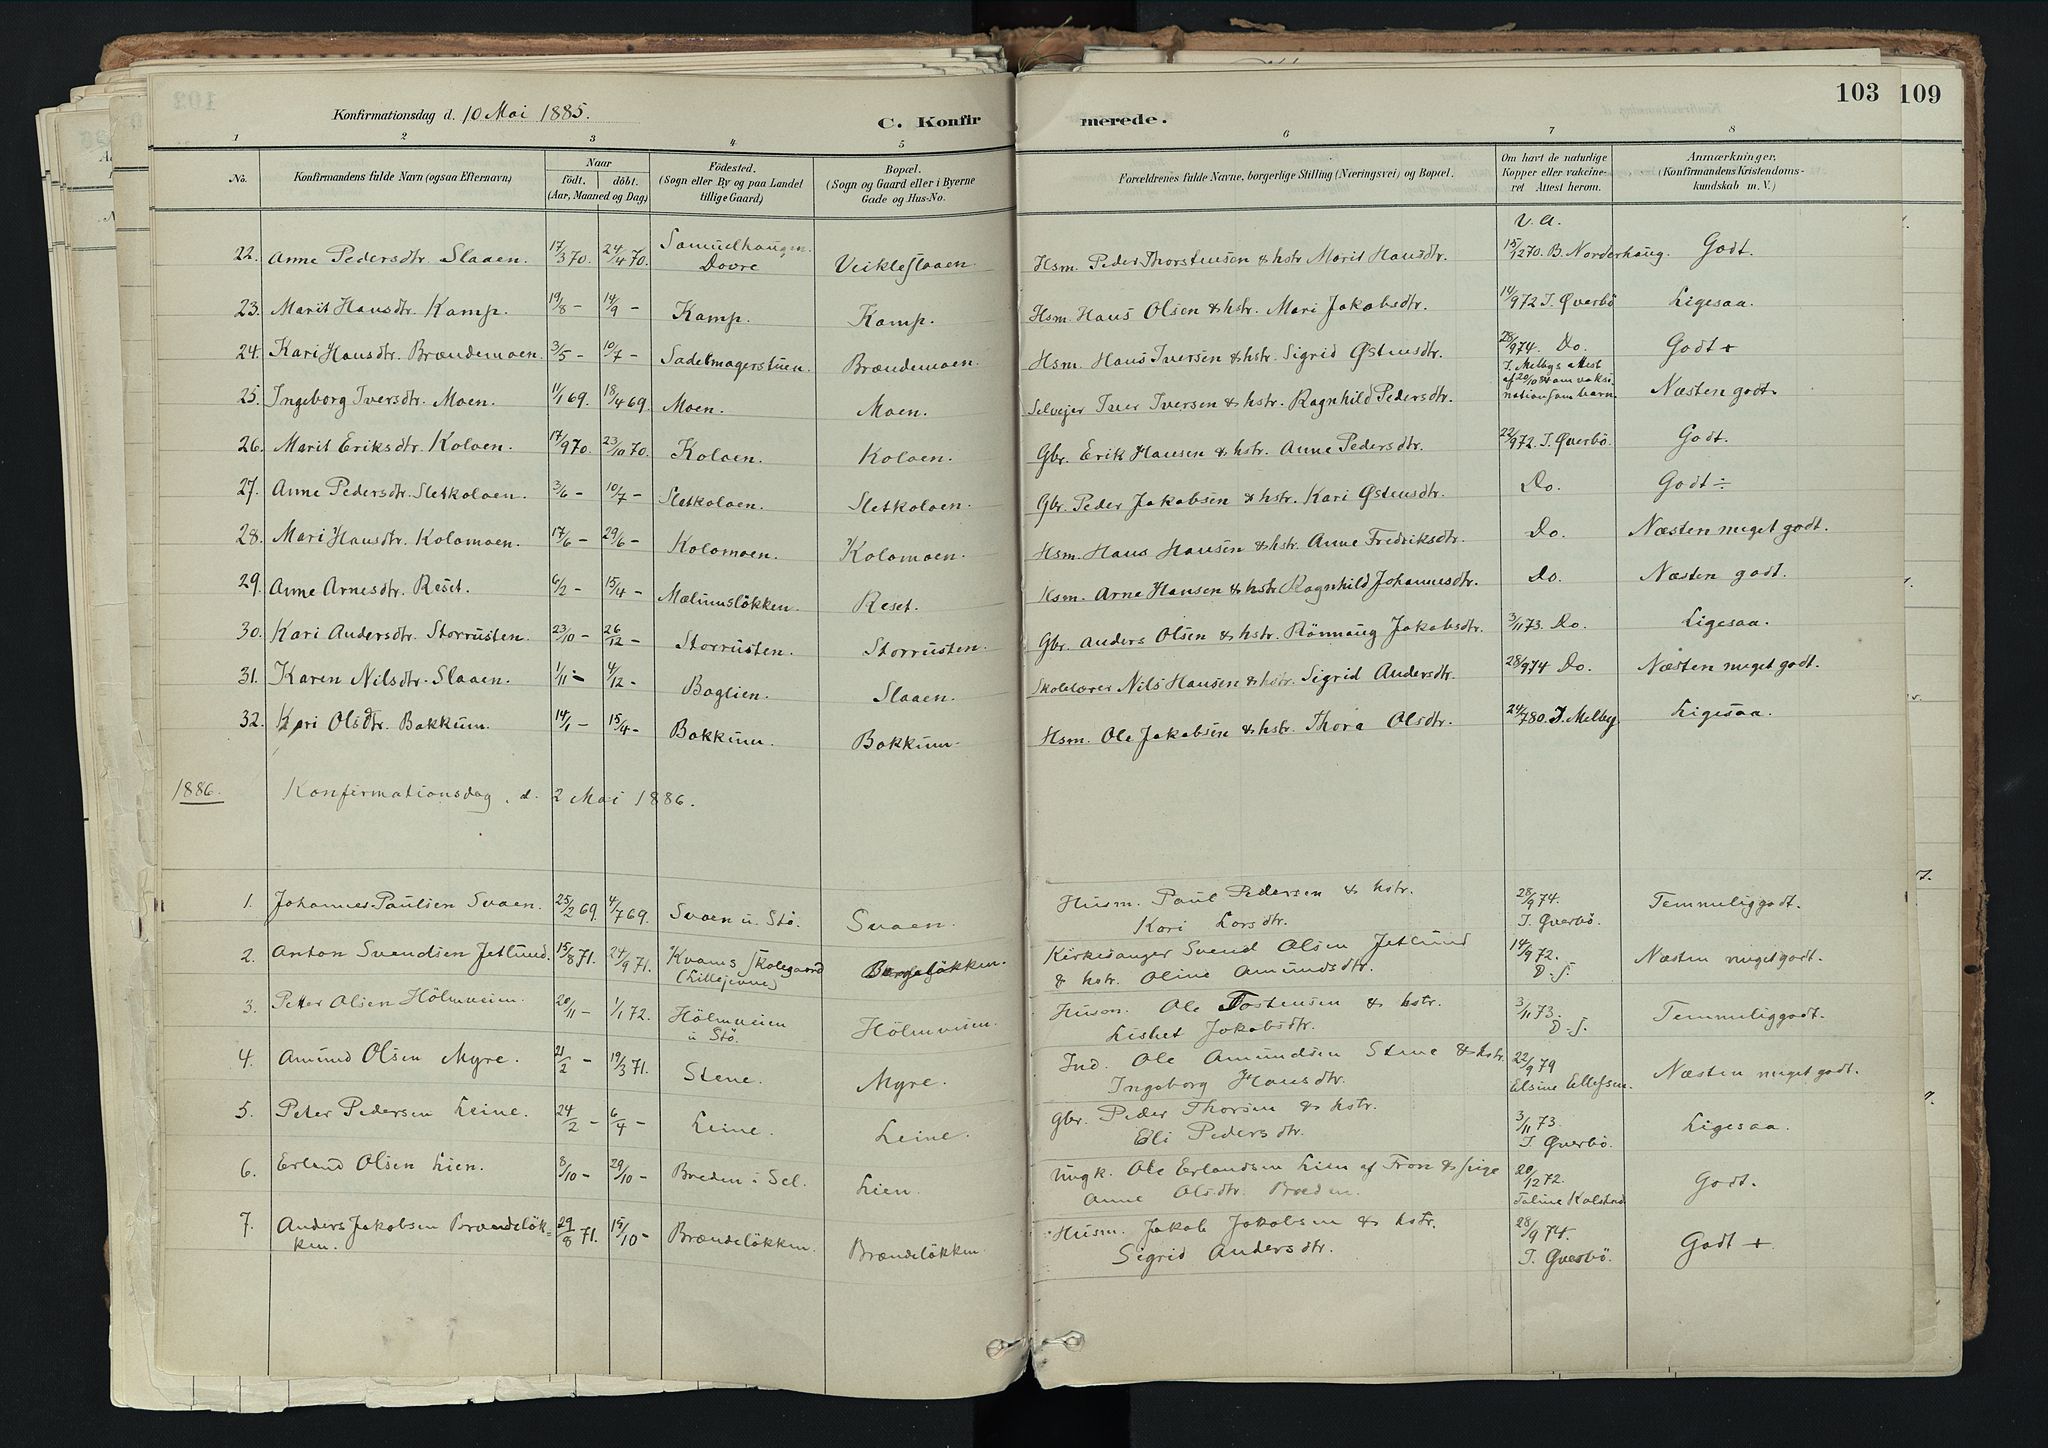 103 109
Konfirmationsdag d. 10 Mai 1885.
C. Konfir merede.
1 2 3 4 5 6 7 8
No.
Konfirmandens fulde Navn (ogsaa Efternavn)
Naar
födt. döbt.
(Aar, Maaned og Dag)
Födested.
(Sogn eller By og paa Landet
tillige Gaard)
Bopæl.
(Sogn og Gaard eller i Byerne
Gade og Hus-No.
Forældrenes fulde Navne, borgerlige Stilling (Næringsvei) og Bopæl.
Om havt de naturlige
Kopper eller vakcine-
ret Attest herom.
Anmærkninger,
(Konfirmandens Kristendoms-
kundskab m. V.)
V. A.
22. Anne Pedersdtr. Slaaen. 17/3 70. 24/4 70. Samuelhaugen Dovre Veikleslaaen Hsm. Peder Thorstensen & hstr Marit Hansdtr. 15/12 70. B. Norderhaug. Godt.
23. Marit Hansdtr. Kamp. 19/8 - 14/9 - Kamp. Kamp. Hsm. Hans Olsen & hstr. Mari Jakobsdtr. 14/9 72 I. Qverbö Ligesaa.
24. Kari Hansdtr. Brændemoen. 3/5 - 10/7 - Sadelmagerstuen. Brændemoen. Hsm. Hans Iversen & hstr. Sigrid Østensdtr. 28/9 74. Do. Godt +
25. Ingeborg Iversdtr. Moen. 11/1 69. 18/4 69. Moen. Moen. Selvejer Iver Iversen & hstr. Ragnhild Pedersdtr. I. Melbys attest af 20/10 84 om vaksi nation som barn. Næsten godt.
26. Marit Eriksdtr. Koloen. 17/9 70. 23/10 70. Koloen. Koloen. Gbr. Erik Hansen & hstr. Anne Pedersdtr. 22/9 72. I. Qverbö. Godt.
27. Anne Pedersdtr. Sletkoloen. 3/6 - 10/7 - Sletkoloen. Sletkoloen. Gbr. Peder Jakobsen & hstr. Kari Østensdtr. Do. Godt ÷
28. Mari Hansdtr. Kolomoen. 17/6 - 29/6 - Kolomoen. Kolomoen. Hsm. Hans Hansen & hstr. Anne Fredriksdtr. Do. Næsten meget godt.
29. Anne Arnesdtr. Reset. 6/2 - 15/4 - Mælumsløkken. Reset. Hsm. Arne Hansen & hstr Ragnhild Johannesdtr. Do. Næsten godt.
30. Kari Andersdtr. Storrusten. 23/10 - 26/12 - Storrusten. Storrusten. Gbr. Anders Olsen & hstr. Rönnaug Jakobsdtr. 3/11 73. Do. Ligesaa.
31. Karen Nilsdtr. Slaaen. 1/11 - 4/12 - Baglien. Slaaen. Skolelærer Nils Hansen & hstr. Sigrid Andersdtr. 28/9 74 Do. Næsten meget godt.
32. Kari Olsdtr. Bakkum. 14/1 - 15/4 - Bakkum. Bakkum. Hsm. Ole Jakobsen & hstr. Thora Olsdtr. 24/7 80. I. Melby. Ligesaa.
1886. Konfirmationsdag, d. 2 Mai 1886.
1. Johannes Paulsen Svaen. 25/2 69. 4/7 69. Svaen u. Stö. Svaen. Husm. Paul Pedersen & hstr.
Kari Larsdtr. 28/9 74. I. Qverbö. Temmeliggodt.
2. Anton Svendsen Jetlund. 15/8 71. 24/9 71. Kvams Skolegaard Kirkesanger Svend Olsen Jetlund
& hstr. Oline Amundsdtr. 14/9 72. D. S. Næsten meget godt.
3. Petter Olsen Hölmveien. 20/11 - 1/1 72. Hölmveien
u Stö. Hölmveien. Husm. Ole Tostensen & hstr.
Lisbet Jakobsdtr. 3/11 73. D. S. Temmeliggodt.
4. Amund Olsen Myre. 21/2 - 19/3 71. Stene. Myre. Ind. Ole Amundsen Stene & hstr.
Ingeborg Hansdtr. 22/9 79 Elsine Ellefsen. Næsten meget godt.
5. Peter Pedersen Leine. 24/2 - 6/4 - Leine. Leine. Gbr. Peder Thorsen & hstr.
Eli Pedersdtr. 3/11 73. I. Qverbö. Ligesaa.
6. Erland Olsen Lien. 8/10 - 29/10 - Breden i Sel. Lien. Ungk. Ole Erlandsen Lien af Fron & pige
Anne Olsdtr. Breden. 20/12 72. Godt.
7. Anders Jakobsen Brændeløk-
ken. 29/8 71. 15/10 - Brændeløkken. Brændeløkken. Husm. Jakob Jakobsen & hstr.
Sigrid Andersdtr. 28/9 74. I. Qverbö. Godt +